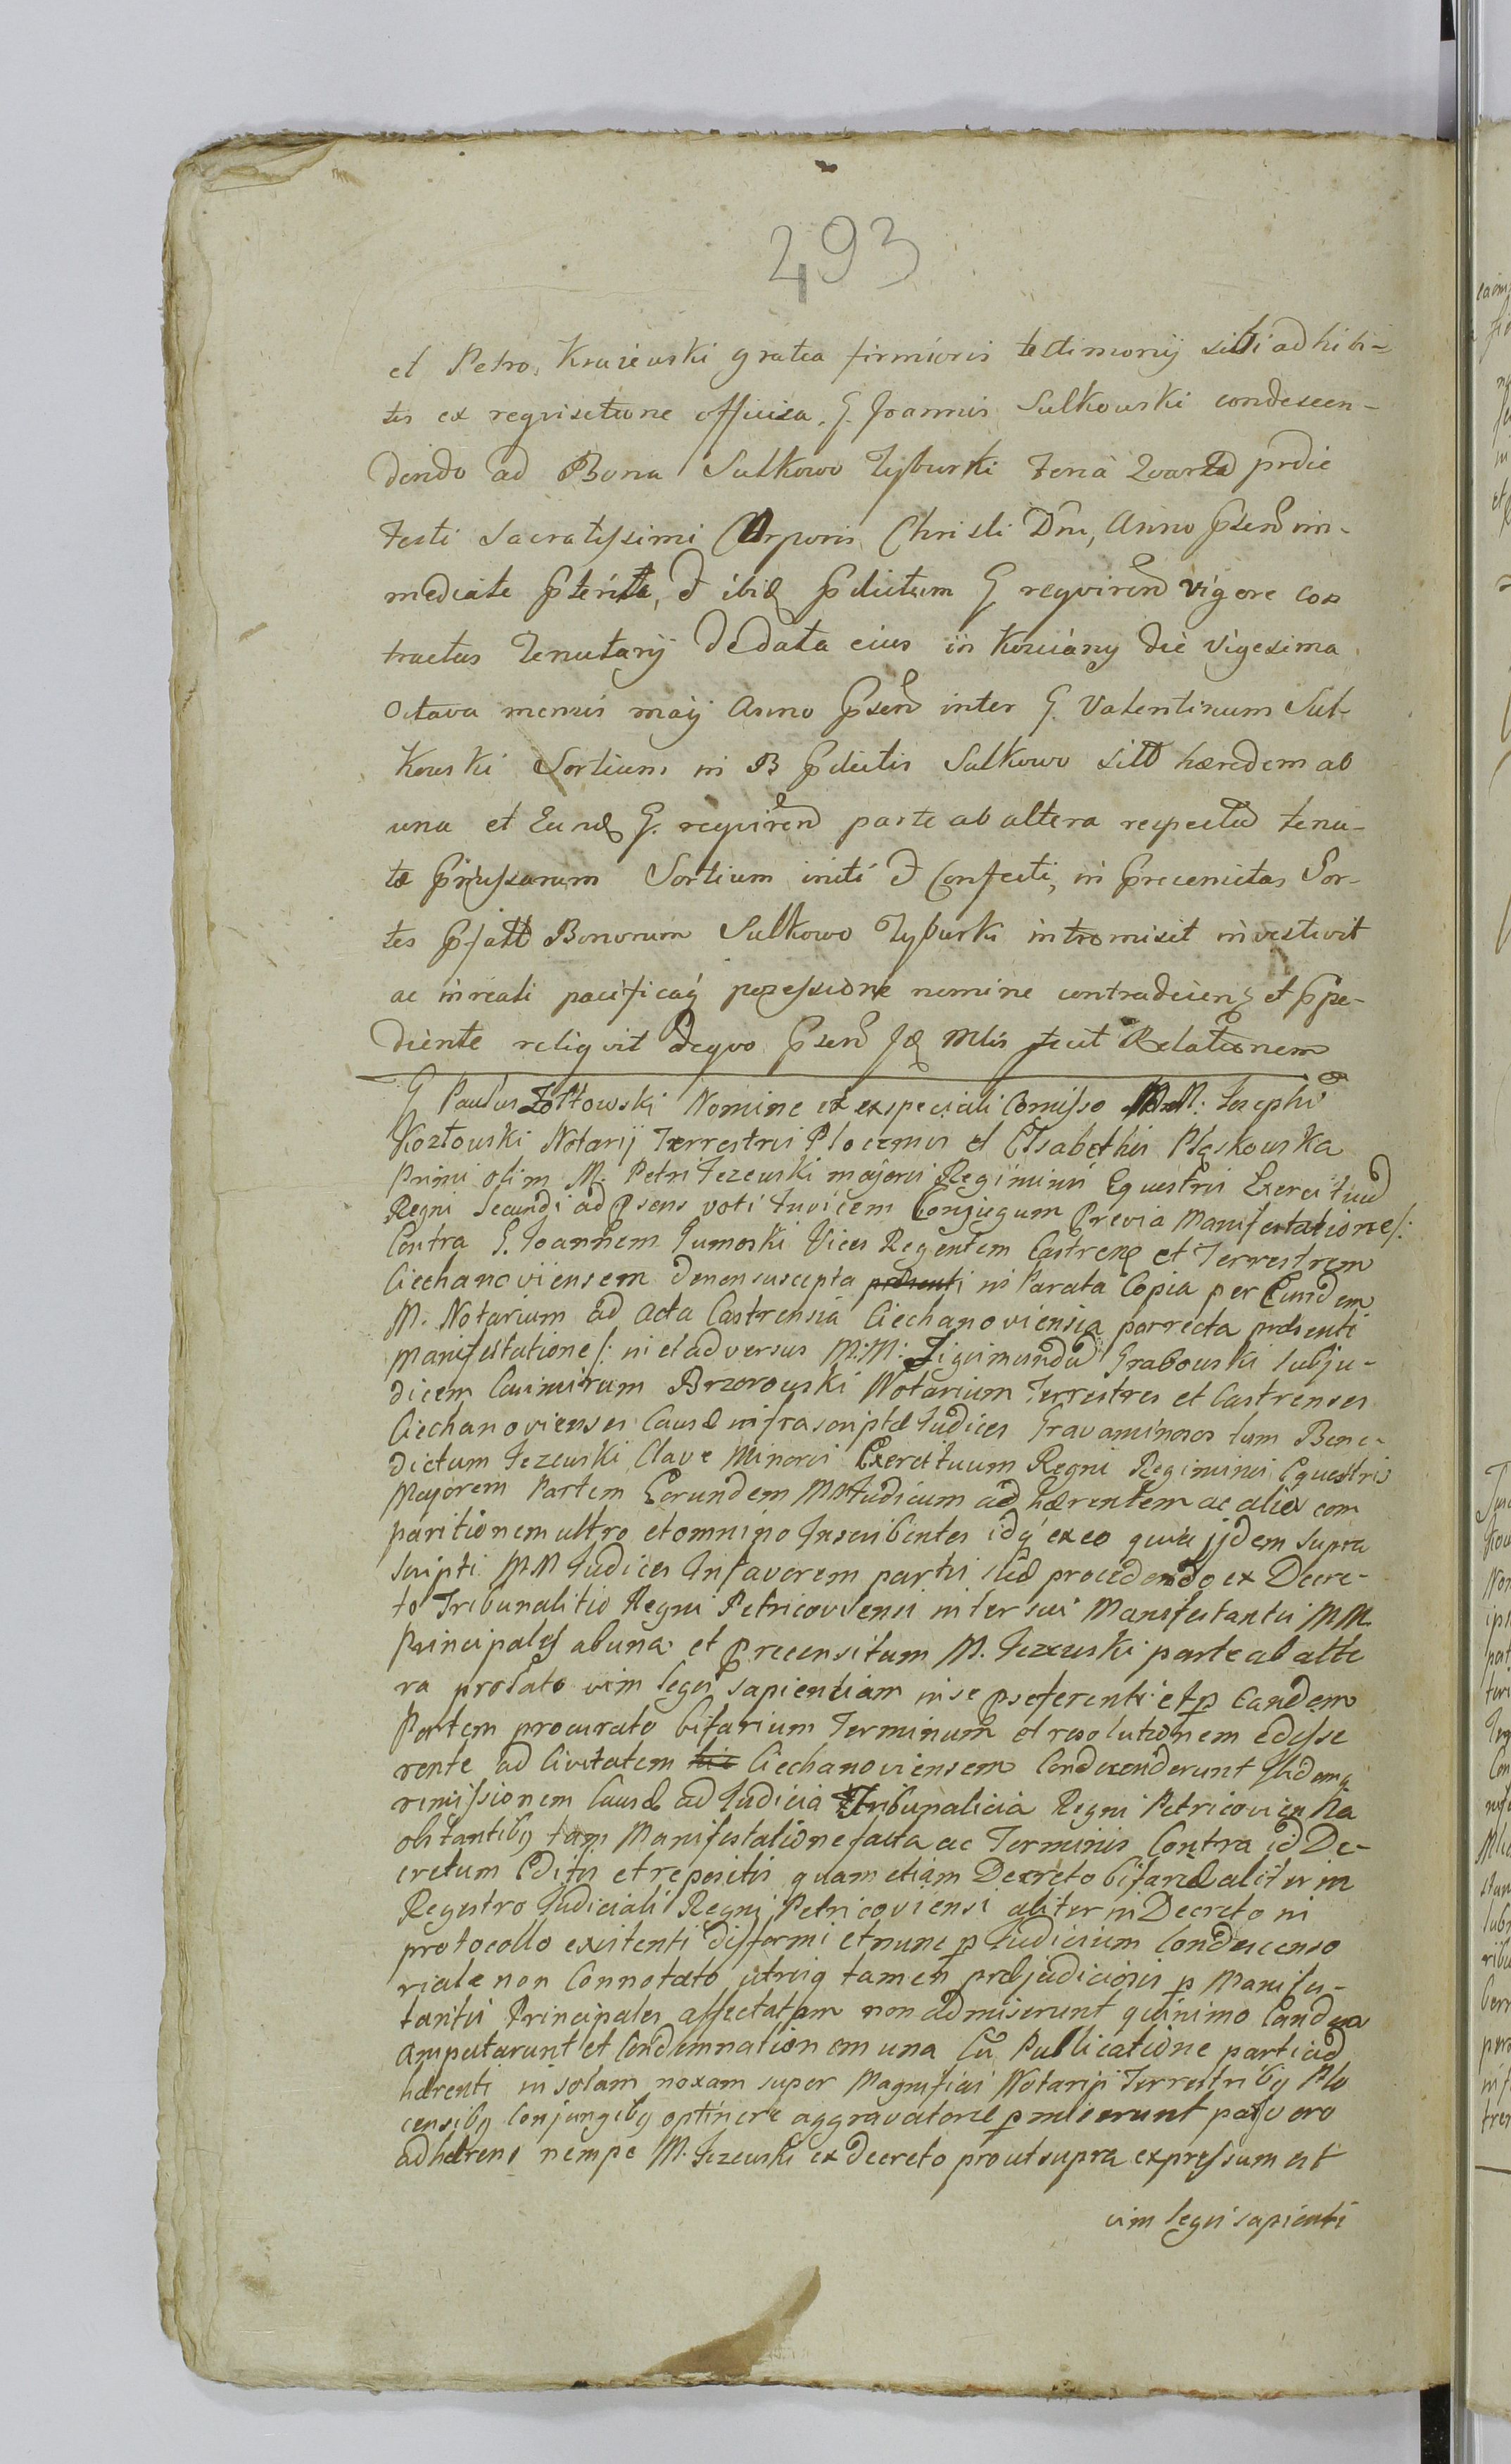 493
et Petro Krajewski gratia firmioris testimonij sibi adhibi-
tis ex requisitione officiosa G. Joannis Sulkowski condescen-
dendo ad Bona Sulkowo Tyburki Feria Quarta pridie
Festi Sacratissimi Corporis Christi Dni, Anno psend im-
mediate pterita, et ibid pdictum G requirend vigore con
tractus Tenutarij de data eius in die Vigesima
Octava mensis maij Anno psend inter G. Valentinum Sul-
kowski Sortium in B pdictis Sulkowo sitt hæredem ab
una et Eund G. requirend parte ab altera respectu tenu-
tæ Sortium initi et Confecti, in precensitas Sor-
tes pfatt Bonorum Sulkowo Tyburki intromisit investivit
ac in reali pacificaq possessione nemine contradicen et ppe-
diente reliqvit de qvo psend fid Mlis fecit Relationem
G Paulus Zołtowski Nomine et ex speciali Comisso M.M: Josephi
Kozłowski Notarij Terrestris Plocensis et Elsabethis Pląskowska
Primi olim M. Petri Jezewski majoris Regiminis Eqvestris Exercituu
Regni Secundi ad psens voti Invicem Conjugum Previa Manifestatione/:
Contra G. Joannem Vices Regentem Castrens et Terrestrem
Ciechanoviensem denon suscepta presenti in Parata Copia per Eundem
M. Notarium ad Acta Castrensia Ciechanoviensia porrecta præsenti
Manifestatione/: in et adversus M:M: Sigismundu Grabowski Subju-
dicem Casimirum Brzozowski Notarium Terrestres et Castrenses
Ciechanovienses Causæ infrascriptæ Judices Gravaminosos tum Bene-
dictum Jezewski Clave Minoris Exercituum Regni Regiminis Eqvestris
Majorem Partem Eorundem MM Judicum adhærentem ac alia com
paritionem ultro et omnino Inscribentes idq ex eo quia ijdem supra
scripti MM Judices In favorem partis suæ procedendo ex Decre-
to Tribunalitio Regni Petricoviensi inter sui Manifestantis MM
Principales ab una et Precensitum M. Jezewski parte ab alte
ra prolato vim legis sapientiam in se pseferenti et p Eandem
Partem procurato bifarium Terminum et resolutionem
rente ad Civitatem hic Ciechanoviensem Condescenderunt
remissionem Causæ ad Judicia Tribunalicia Regni Petricovien
obstantibq tam Manifestatione facta ac Terminis Contra id De-
cretum Editis et repositis quam etiam Decreto bifarie aliter in
Regestro Judiciali Regni Petricoviensi aliter in Decreto in
protocollo existenti difformi et nunc p Judicium Condescenso
riale non Connotato utriq tamen præjudiciosis p Manifes-
tantis Principales affectatam non admiserunt quinimo Eandem
amputarunt et Condemnationem una Cu Publicatione parti ad
hærenti in solam noxam super Magnificis Notarij Terrestribq Plo
censibq Conjungibq optinere aggravatorie pmiserunt pars vero
adhærens nempe M. Jezewski ex decreto prout supra expressum est
vim legis sapienti